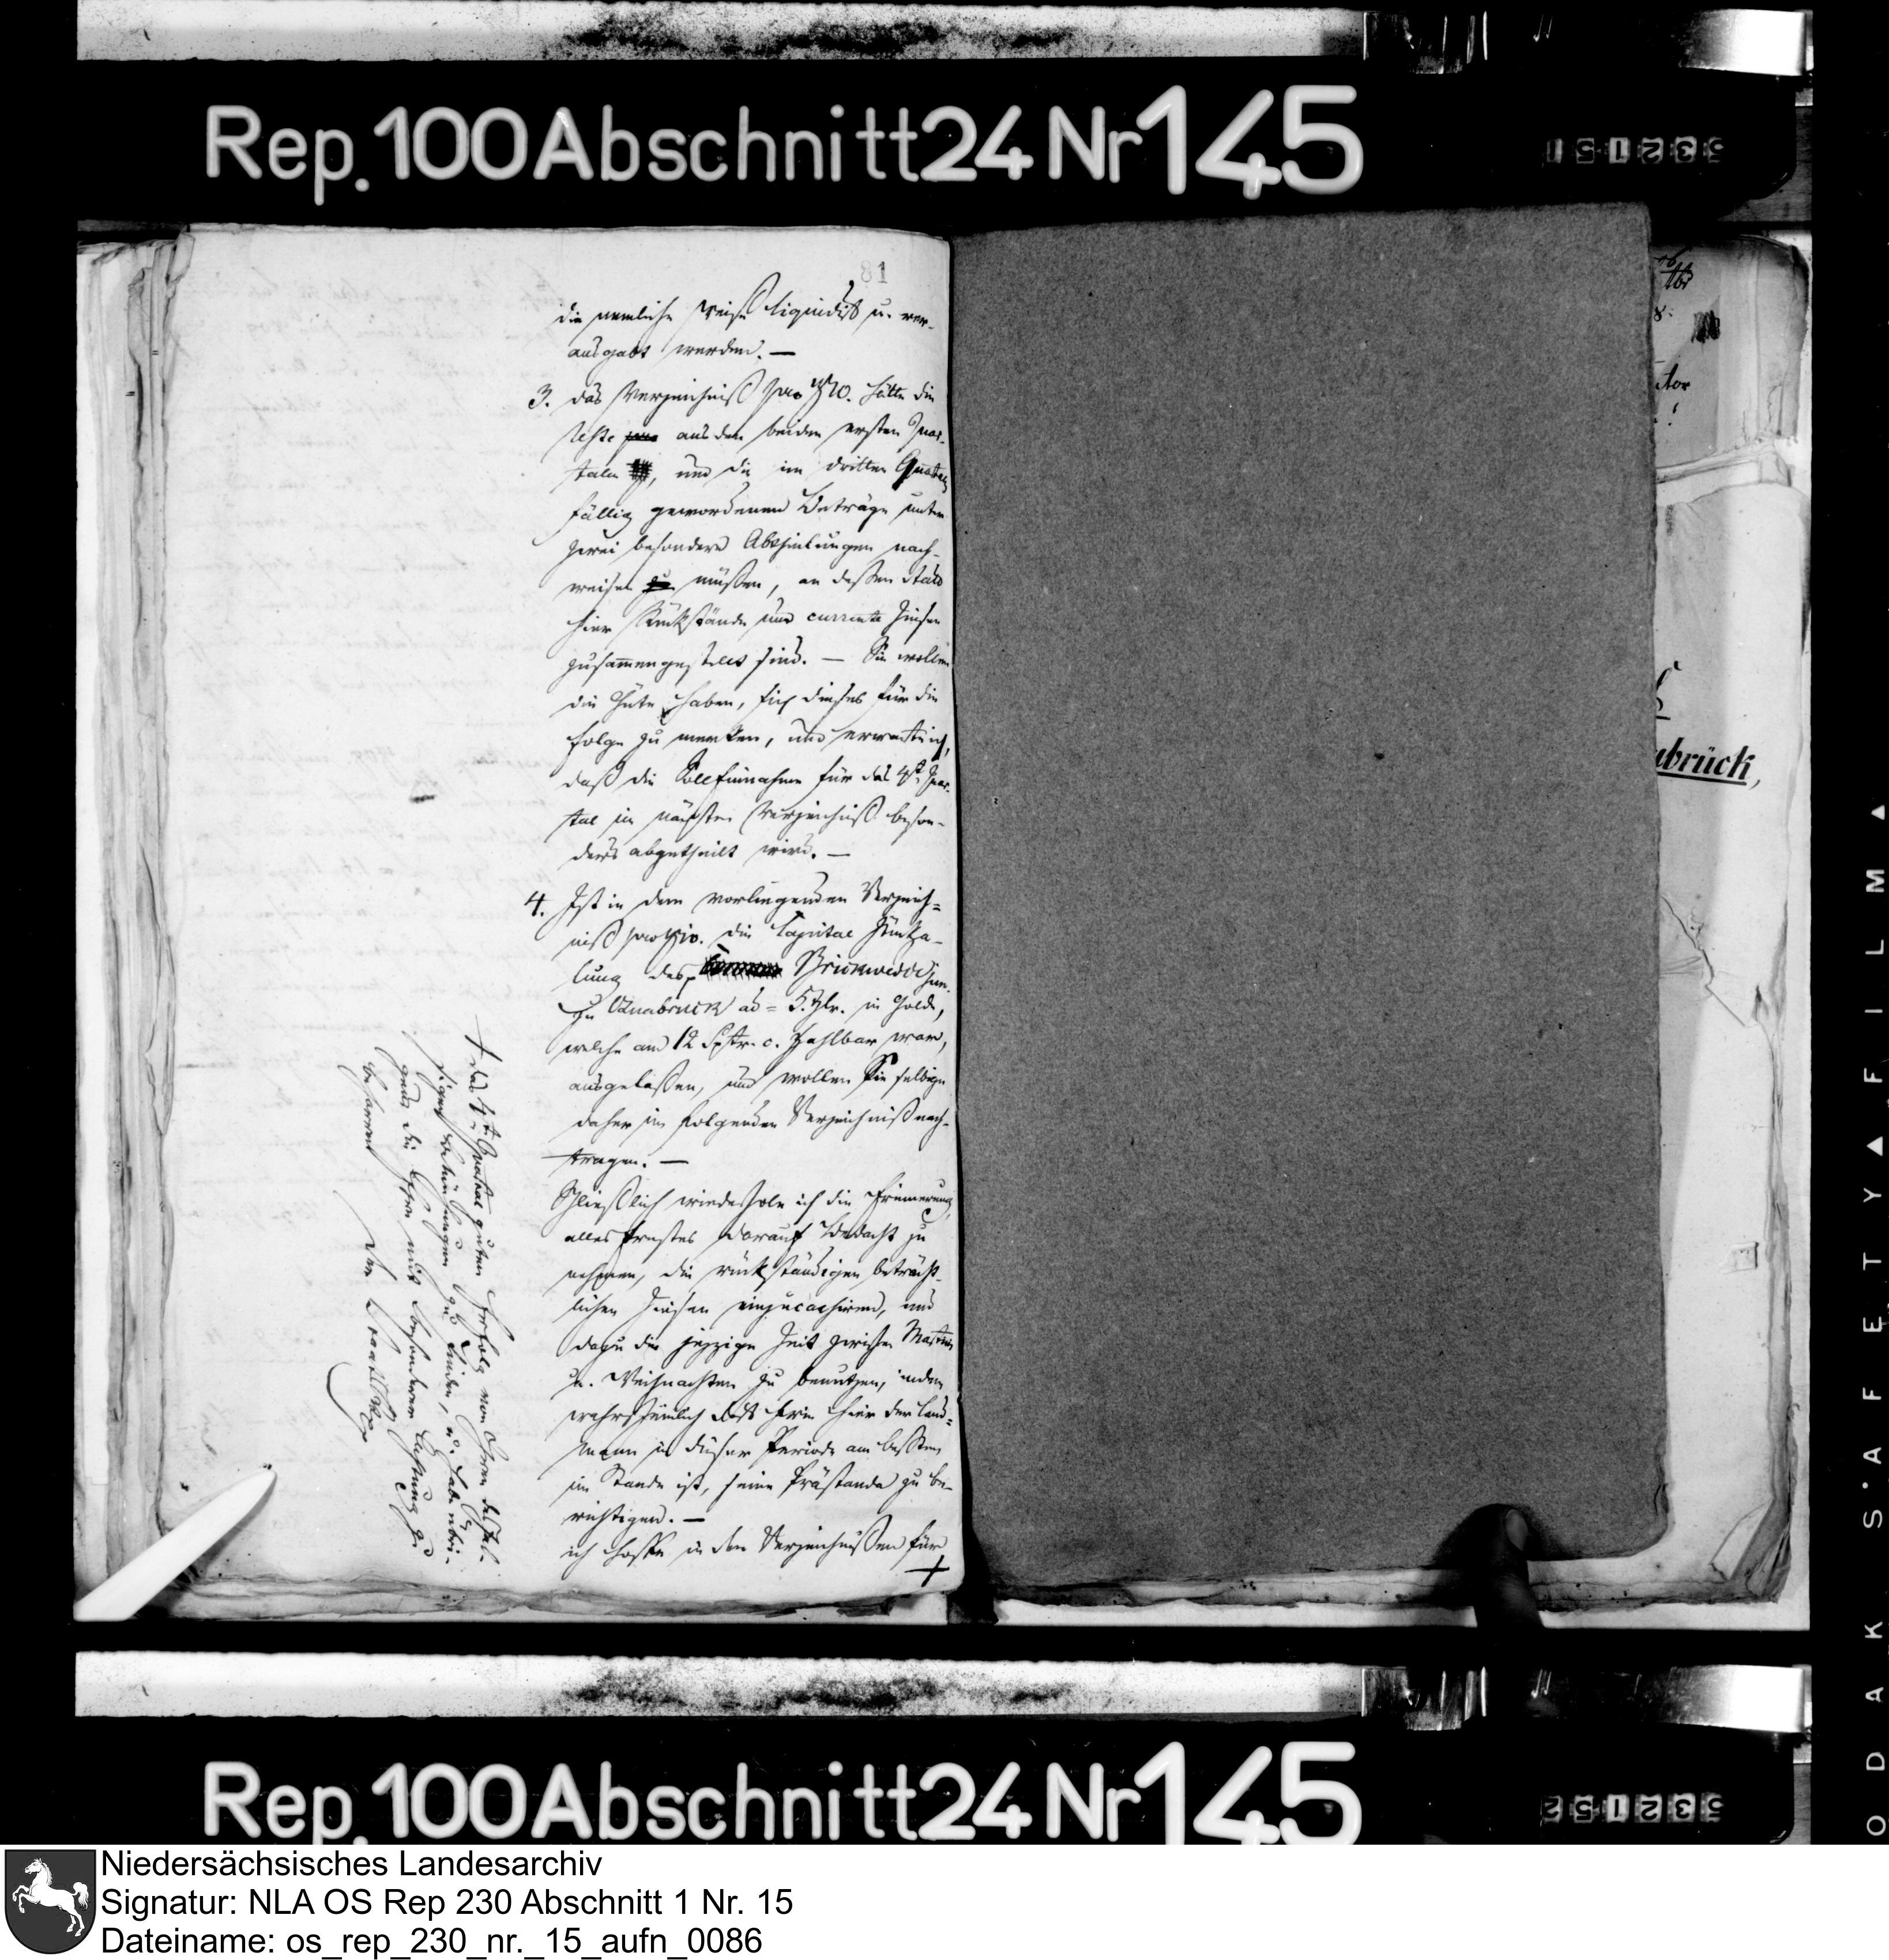 Rep. 100 Abschnitt 24 Nr 145
532151
81
die nemliche Weise liquidirt u. ver-
ausgabt werden. —
3. das Verzeichniß pro hätte die
Reste aus den beiden ersten Quar-
talen, und die im dritten Quartal
fällig gewordenen Beträge unter
zwei besondern Abtheilungen nach-
weisen müssen, an dessen statt
hier Rückstände und currente Zinsen
zusammengestellt sind. — Sie wollen
die Güte haben, sich dieses für die
Folge zu merken, und erwarte ich,
daß die Solleinnahme für das 4te Quar-
tal im nächsten Verzeichniß beson-
ders abgetheilt wird. —
4. Ist in dem vorliegenden Verzeich=
niß pro die Capital Rückza-
lung des jun.
zu Osnabrück ad = 5 Thlr. in Golde,
welche am 12 Sptr. c. zahlbar war,
ausgelassen, und wollen Sie selbige
daher im folgenden Verzeichniß nach-
tragen. —
Schließlich wiederhole ich die Erinnerung,
alles Ernstes darauf Bedacht zu
nehmen, die rückständigen beträcht-
lichen Zinsen einzucassiren, und
dazu die jezzige Zeit zwischen Martini
u. Weihnachten zu benutzen, indem
wahrscheinlich hier der Land=
mann in dieser Periode am besten
im Stande ist, seine Prästanda zu be-
richtigen. —
ich hoffe in den Verzeichnißen für
+
+ das 4te Quartal guten Erfolg von Ihren desfal-
sigen Bemühungen zu finden, u. habe übri-
gens die Ehre mit besonderer Achtung zu
beharren
Der
brück,
Rep. 100 Abschnitt 24 Nr 145
532152
KODAK S'AFETY FILM
Niedersächsisches Landesarchiv
Signatur: NLA OS Rep 230 Abschnitt 1 Nr. 15
Dateiname: os_rep_230_nr._15_aufn_0086